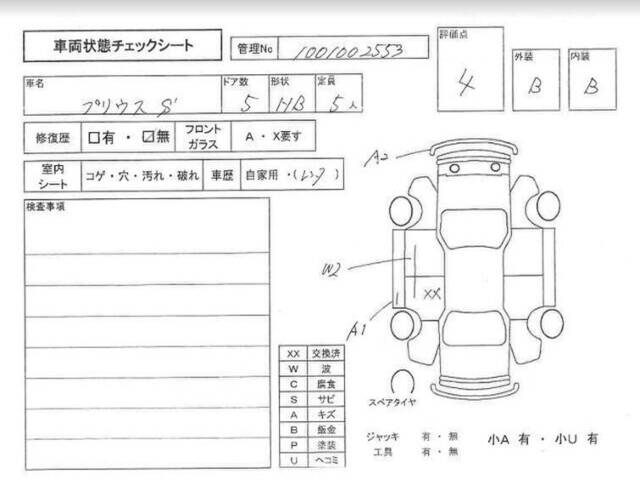 車両状態チェックシート
管理No 1001002553
評価点 4
外装 B
内装 B
車名 プリウス S
ドア数 5
形状 HB
定員 5人
修復歴 □有・☑無
フロントガラス A・X要す
室内シート コゲ・穴・汚れ・破れ
車歴 自家用・(レンタ)
検査事項
A2
W2
XX
A1
XX 交換済
W 波
C 腐食
S サビ
A キズ
B 鈑金
P 塗装
U ヘコミ
スペアタイヤ
ジャッキ 有・無
工具 有・無
小A 有・小U 有